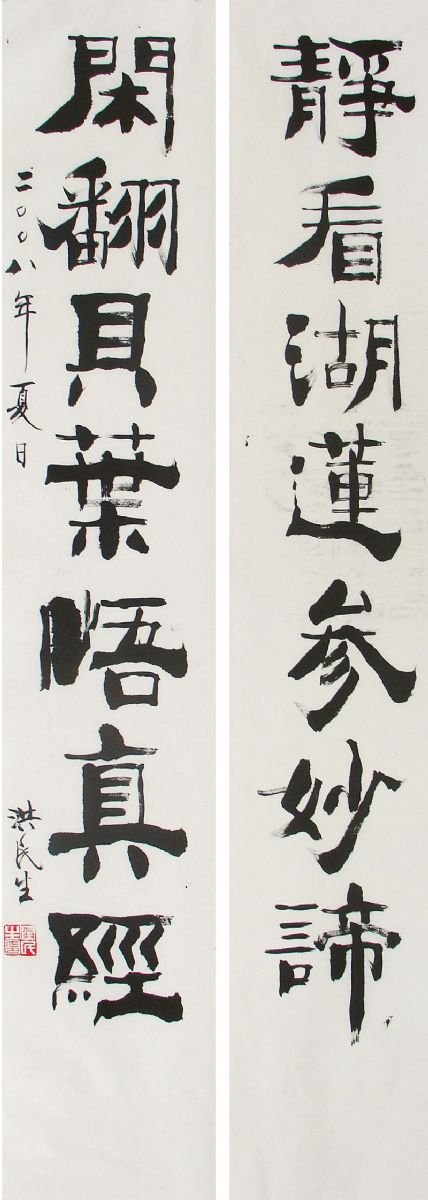 靜看湖蓮參妙諦
閑翻貝葉悟真經
二〇〇八年夏日
洪民生